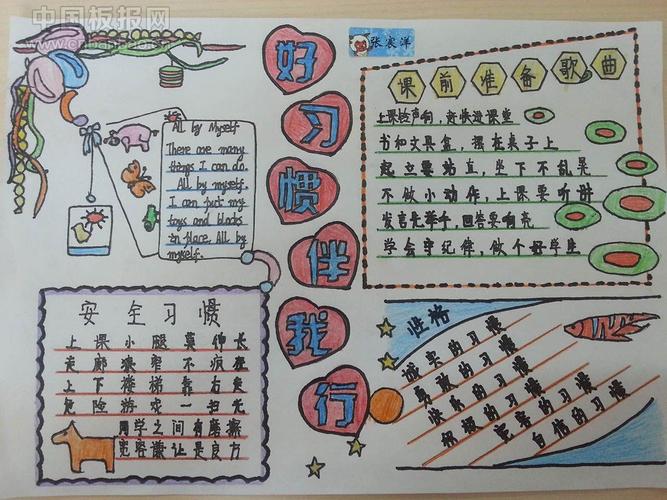 中国板报网
张宸洋
好习惯伴我行
All by Myself
There are many
things I can do.
All by myself.
I can put my
toys and blocks
in place. All by
myself.
课前准备歌曲
上课铃声响，赶快进课堂
书和文具盒，摆在桌子上
起立要站直，坐下不乱晃
不做小动作，上课要听讲
发言先举手，回答要响亮
学会守纪律，做个好学生
安全习惯
上课小腿莫伸长
走廊狭窄不疯
上下楼梯靠右走
危险游戏一扫光
同学之间有磨擦
宽容谦让是良方
性格
诚实的习惯
勇敢的习惯
快乐的习惯
积极的习惯
宽容的习惯
自信的习惯